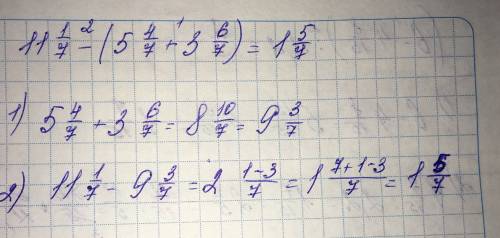 11 1/7 -² (5 4/7 +¹ 3 6/7) = 1 5/7
1) 5 4/7 + 3 6/7 = 8 10/7 = 9 3/7
2) 11 1/7 - 9 3/7 = 2 1-3/7 = 1 7+1-3/7 = 1 5/7